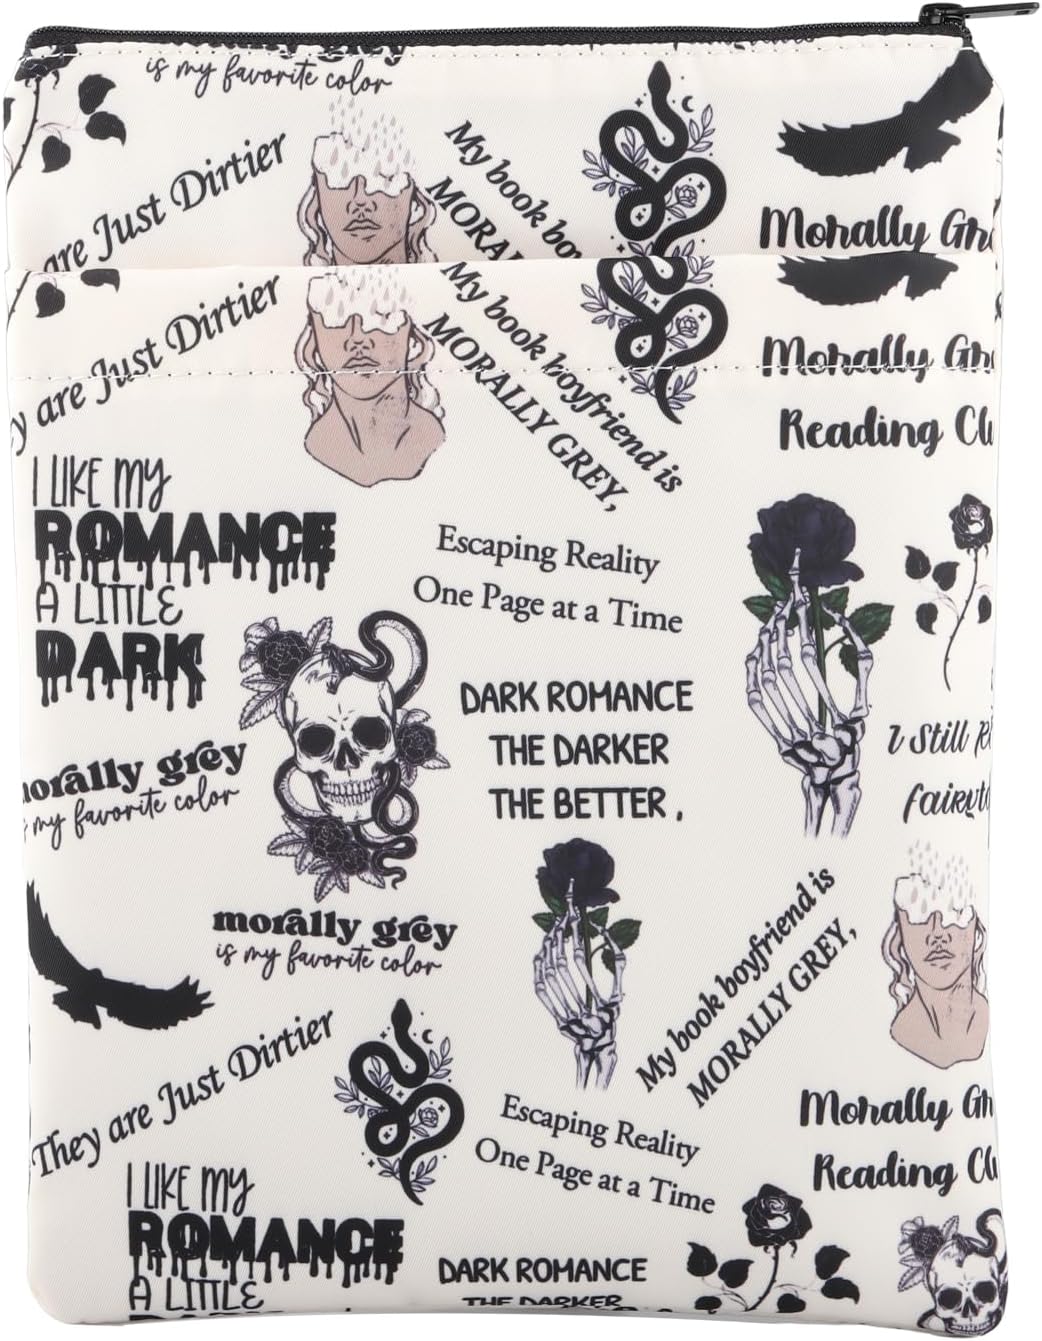 is my favorite color
are Just Dirtier
My book
MORA
Morally Gr
are Just Dirtier
My book boyfriend is
MORALLY GREY,
Morally Gr
Reading Cl
I LIKE MY
ROMANCE
A LITTLE
DARK
Escaping Reality
One Page at a Time
DARK ROMANCE
THE DARKER
THE BETTER ,
morally grey
my favorite color
I Still
fairyt
morally grey
is my favorite color
My book boyfriend is
MORALLY GREY,
They are Just Dirtier
Escaping Reality
One Page at a Time
Morally Gr
Reading Cl
I LIKE MY
ROMANCE
A LITTLE
DARK ROMANCE
THE DARKER